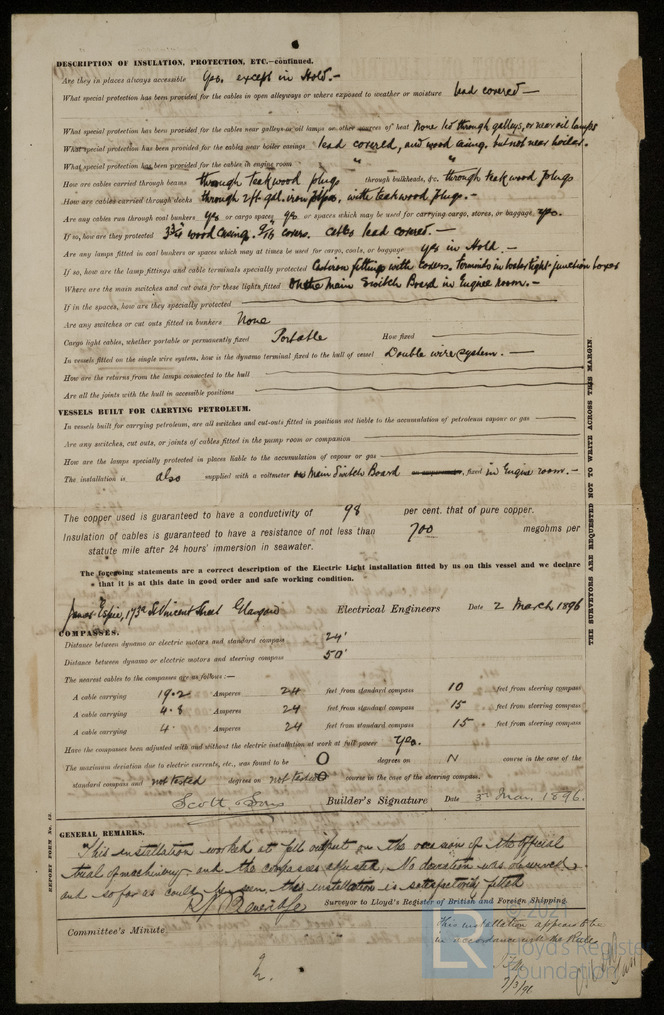 DESCRIPTION OF INSULATION, PROTECTION, ETC.—continued.
Are they in places always accessible Yes. except in Hold.—
What special protection has been provided for the cables in open alleyways or where exposed to weather or moisture lead covered—
What special protection has been provided for the cables near galleys or oil lamps or other sources of heat None led through galleys, or near oil lamps
What special protection has been provided for the cables near boiler casings lead covered, and wood casing. but not near boiler.
What special protection has been provided for the cables in engine room " "
How are cables carried through beams through teakwood plugs through bulkheads, &c. through teakwood plugs
How are cables carried through decks through 2ft gal. iron pipes, with teakwood plugs.—
Are any cables run through coal bunkers yes or cargo spaces yes or spaces which may be used for carrying cargo, stores, or baggage yes.
If so, how are they protected wood casing. 9/16 covers. cables lead covered.—
Are any lamps fitted in coal bunkers or spaces which may at times be used for cargo, coals, or baggage yes in Hold.—
If so, how are the lamp fittings and cable terminals specially protected Cast iron fittings with covers. terminals in watertight junction boxes
Where are the main switches and cut outs for these lights fitted On the Main Switch Board in Engine room.—
If in the spaces, how are they specially protected
Are any switches or cut outs fitted in bunkers None
Cargo light cables, whether portable or permanently fixed Portable How fixed
In vessels fitted on the single wire system, how is the dynamo terminal fixed to the hull of vessel Double wire system.—
How are the returns from the lamps connected to the hull
Are all the joints with the hull in accessible positions
VESSELS BUILT FOR CARRYING PETROLEUM.
In vessels built for carrying petroleum, are all switches and cut-outs fitted in positions not liable to the accumulation of petroleum vapour or gas
Are any switches, cut outs, or joints of cables fitted in the pump room or companion
How are the lamps specially protected in places liable to the accumulation of vapour or gas
The installation is also supplied with a voltmeter on Main Switch Board , fixed in Engine room.—
The copper used is guaranteed to have a conductivity of 98 per cent. that of pure copper.
Insulation of cables is guaranteed to have a resistance of not less than 700 megohms per
statute mile after 24 hours' immersion in seawater.
The foregoing statements are a correct description of the Electric Light installation fitted by us on this vessel and we declare
that it is at this date in good order and safe working condition.
James Espie, 173a St Vincent Street Glasgow Electrical Engineers Date 2 March 1896
COMPASSES.
Distance between dynamo or electric motors and standard compass 24'
Distance between dynamo or electric motors and steering compass 50'
The nearest cables to the compasses are as follows:—
A cable carrying 19.2 Amperes 24 feet from standard compass 10 feet from steering compass
A cable carrying 4.8 Amperes 24 feet from standard compass 15 feet from steering compass
A cable carrying 4. Amperes 24 feet from standard compass 15 feet from steering compass
Have the compasses been adjusted with and without the electric installation at work at full power Yes.
The maximum deviation due to electric currents, etc., was found to be 0 degrees on N course in the case of the
standard compass and not tested degrees on not tested course in the case of the steering compass.
Scott & Sons Builder's Signature Date 3rd Mar. 1896.
GENERAL REMARKS.
This installation worked at full output on the occasion of the official
trial of machinery and the compasses adjusted, No deviation was observed,
and so far as could be seen, this installation is satisfactorily fitted
Surveyor to Lloyd's Register of British and Foreign Shipping.
Committee's Minute
This installation appears to be
in accordance with the Rules
7/3/96
THE SURVEYORS ARE REQUESTED NOT TO WRITE ACROSS THIS MARGIN
REPORT FORM No. 13.
© 2021
LR
Lloyd's Register
Foundation